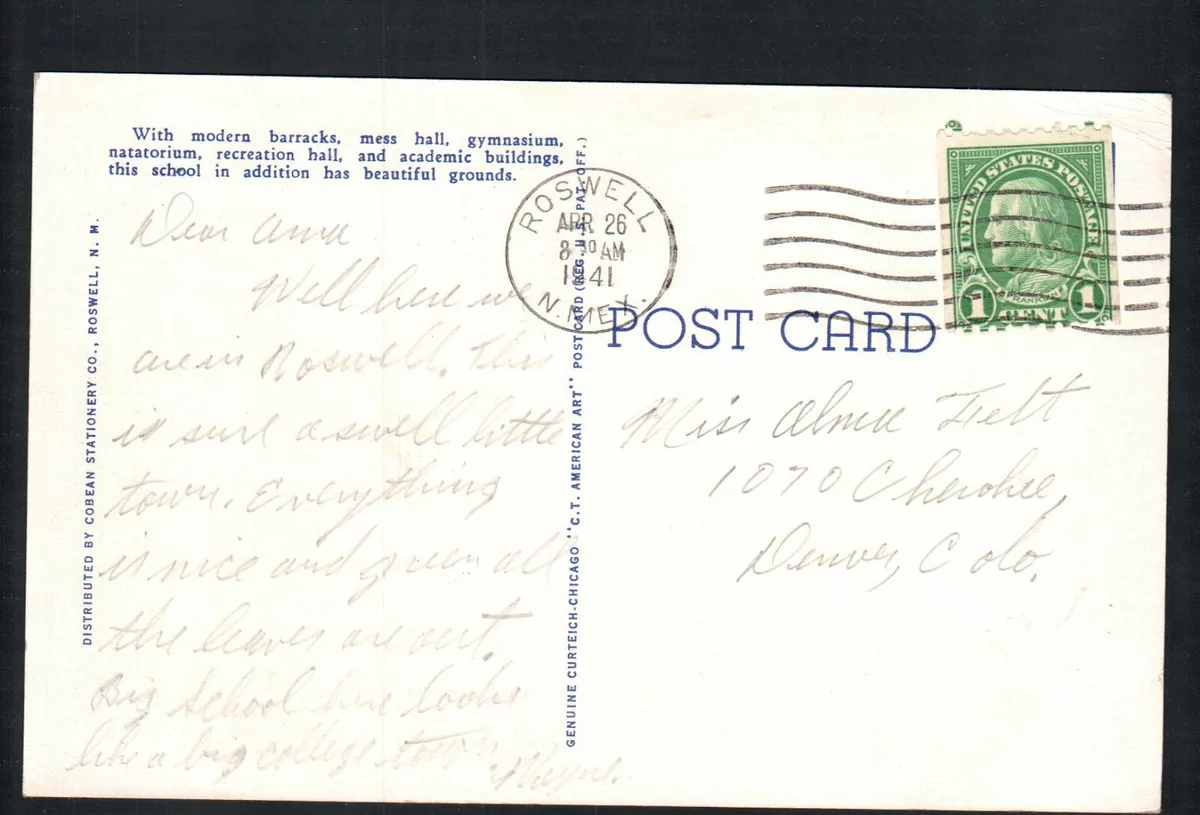 With modern barracks, mess hall, gymnasium,
natatorium, recreation hall, and academic buildings,
this school in addition has beautiful grounds.
DISTRIBUTED BY COBEAN STATIONERY CO., ROSWELL, N. M.
Dear
Well here we
are in Roswell. This
is sure a swell little
town. Everything
is nice and green all
the leaves are out.
Big School here looks
like a big college town
Wayne.
GENUINE CURTEICH-CHICAGO "C.T. AMERICAN ART" POST CARD (REG. U.S. PAT. OFF.)
ROSWELL
APR 26
8 30 AM
1941
N. MEX.
UNITED STATES POSTAGE
FRANKLIN
1 CENT 1
POST CARD
Miss Alma Felt
1070 Cherokee,
Denver, Colo.